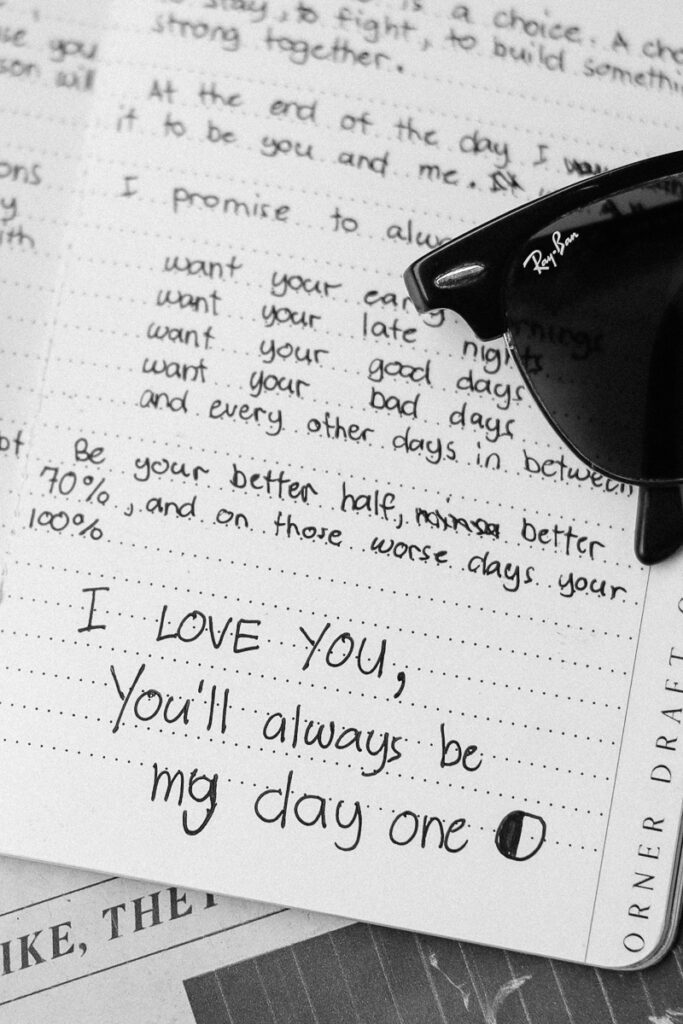 is a choice. A cho
to stay, to fight, to build somethi
strong together.
At the end of the day I
it to be you and me.
I promise to alw
want your early mornings
want your late nights
want your good days
want your bad days
and every other days in between
Be your better half, better
70%, and on those worse days your
100%
I LOVE YOU,
You'll always be
my day one
se you
son will
ons
y
ith
bt
Ray-Ban
ORNER DRAFT
IKE, THEY